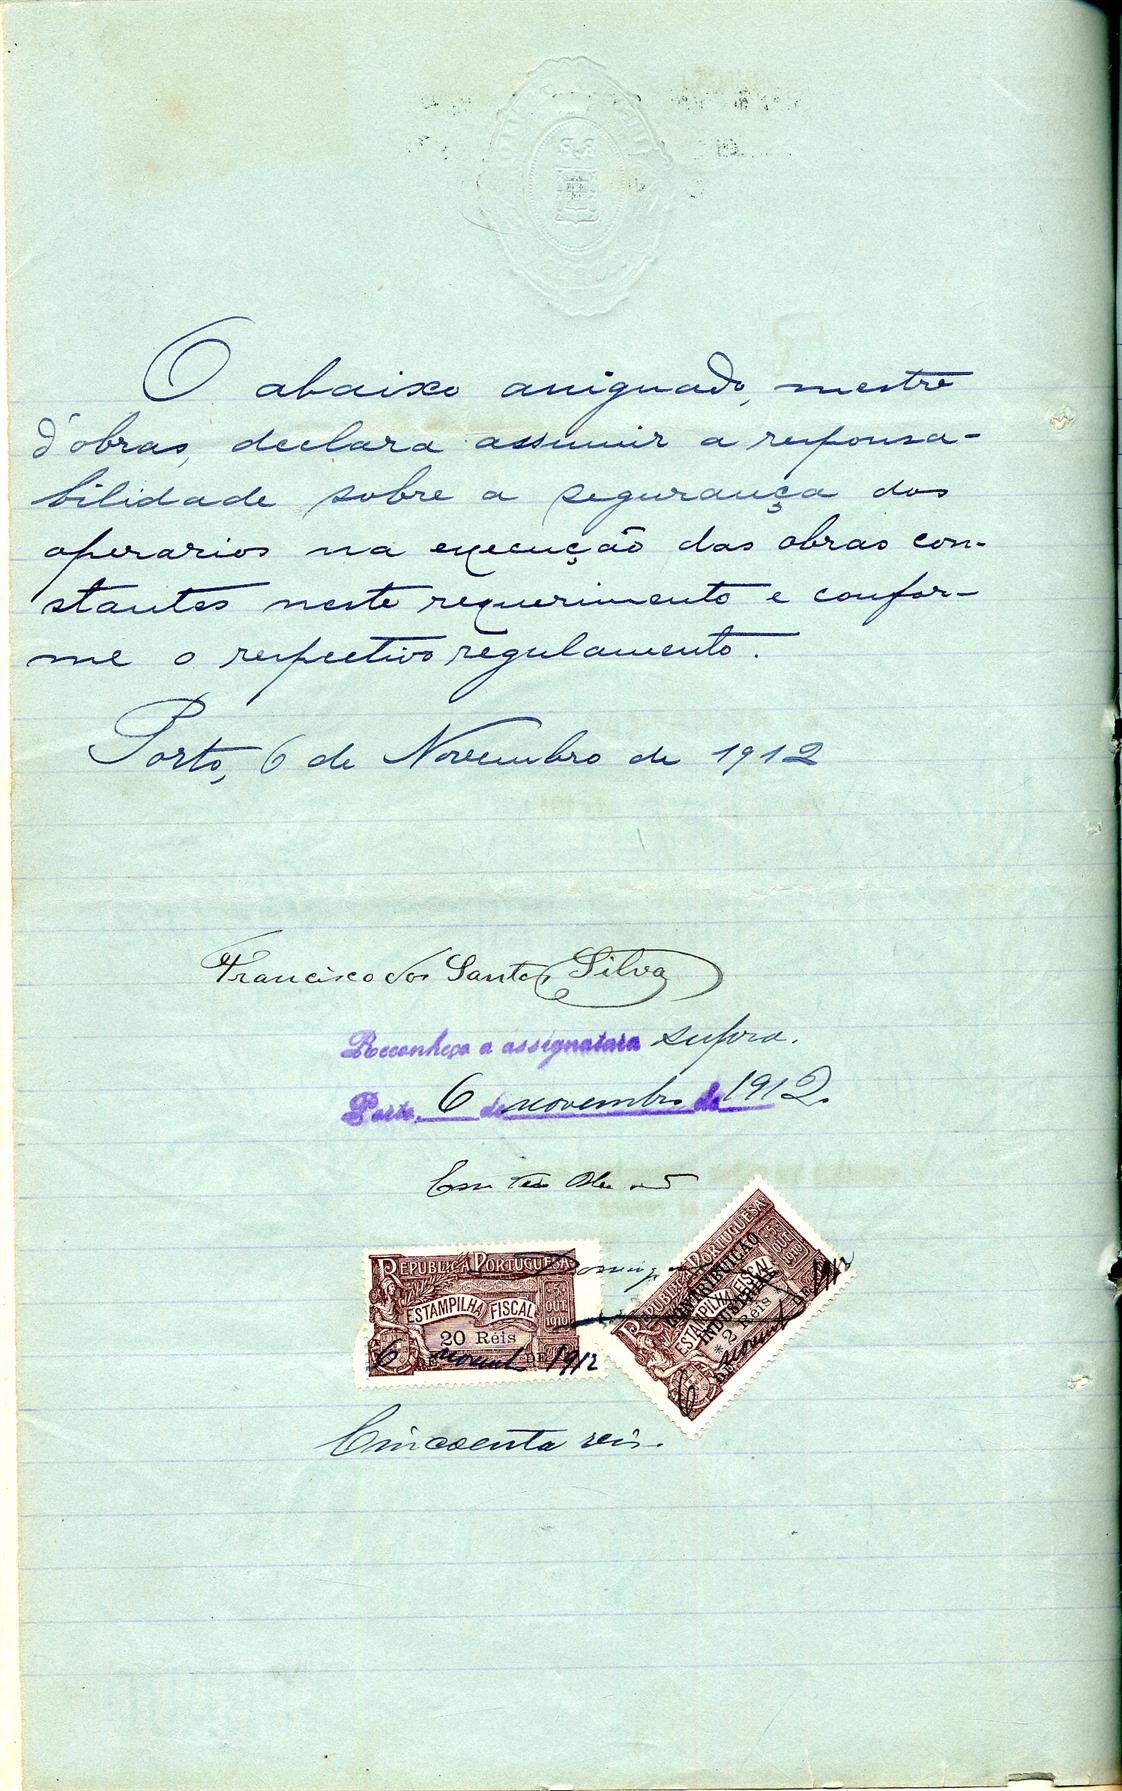 O abaixo assignado, mestre
d'obras, declara assumir a responsa-
bilidade sobre a segurança dos
operarios na execução das obras con-
stantes neste requerimento e confor-
me o respectivo regulamento.
Porto, 6 de Novembro de 1912
Francisco dos Santos Silva
Reconheço a assignatura supra.
Porto, 6 de novembro de 1912.
REPUBLICA PORTUGUESA
5 OUT 1910
ESTAMPILHA FISCAL
20 Réis
6 DE novemb DE 1912
REPUBLICA PORTUGUESA
5 OUT 1910
CONTRIBUIÇÃO
ESTAMPILHA FISCAL
INDUSTRIAL
2 Réis
6 DE novemb DE 1912
Cincoenta reis.